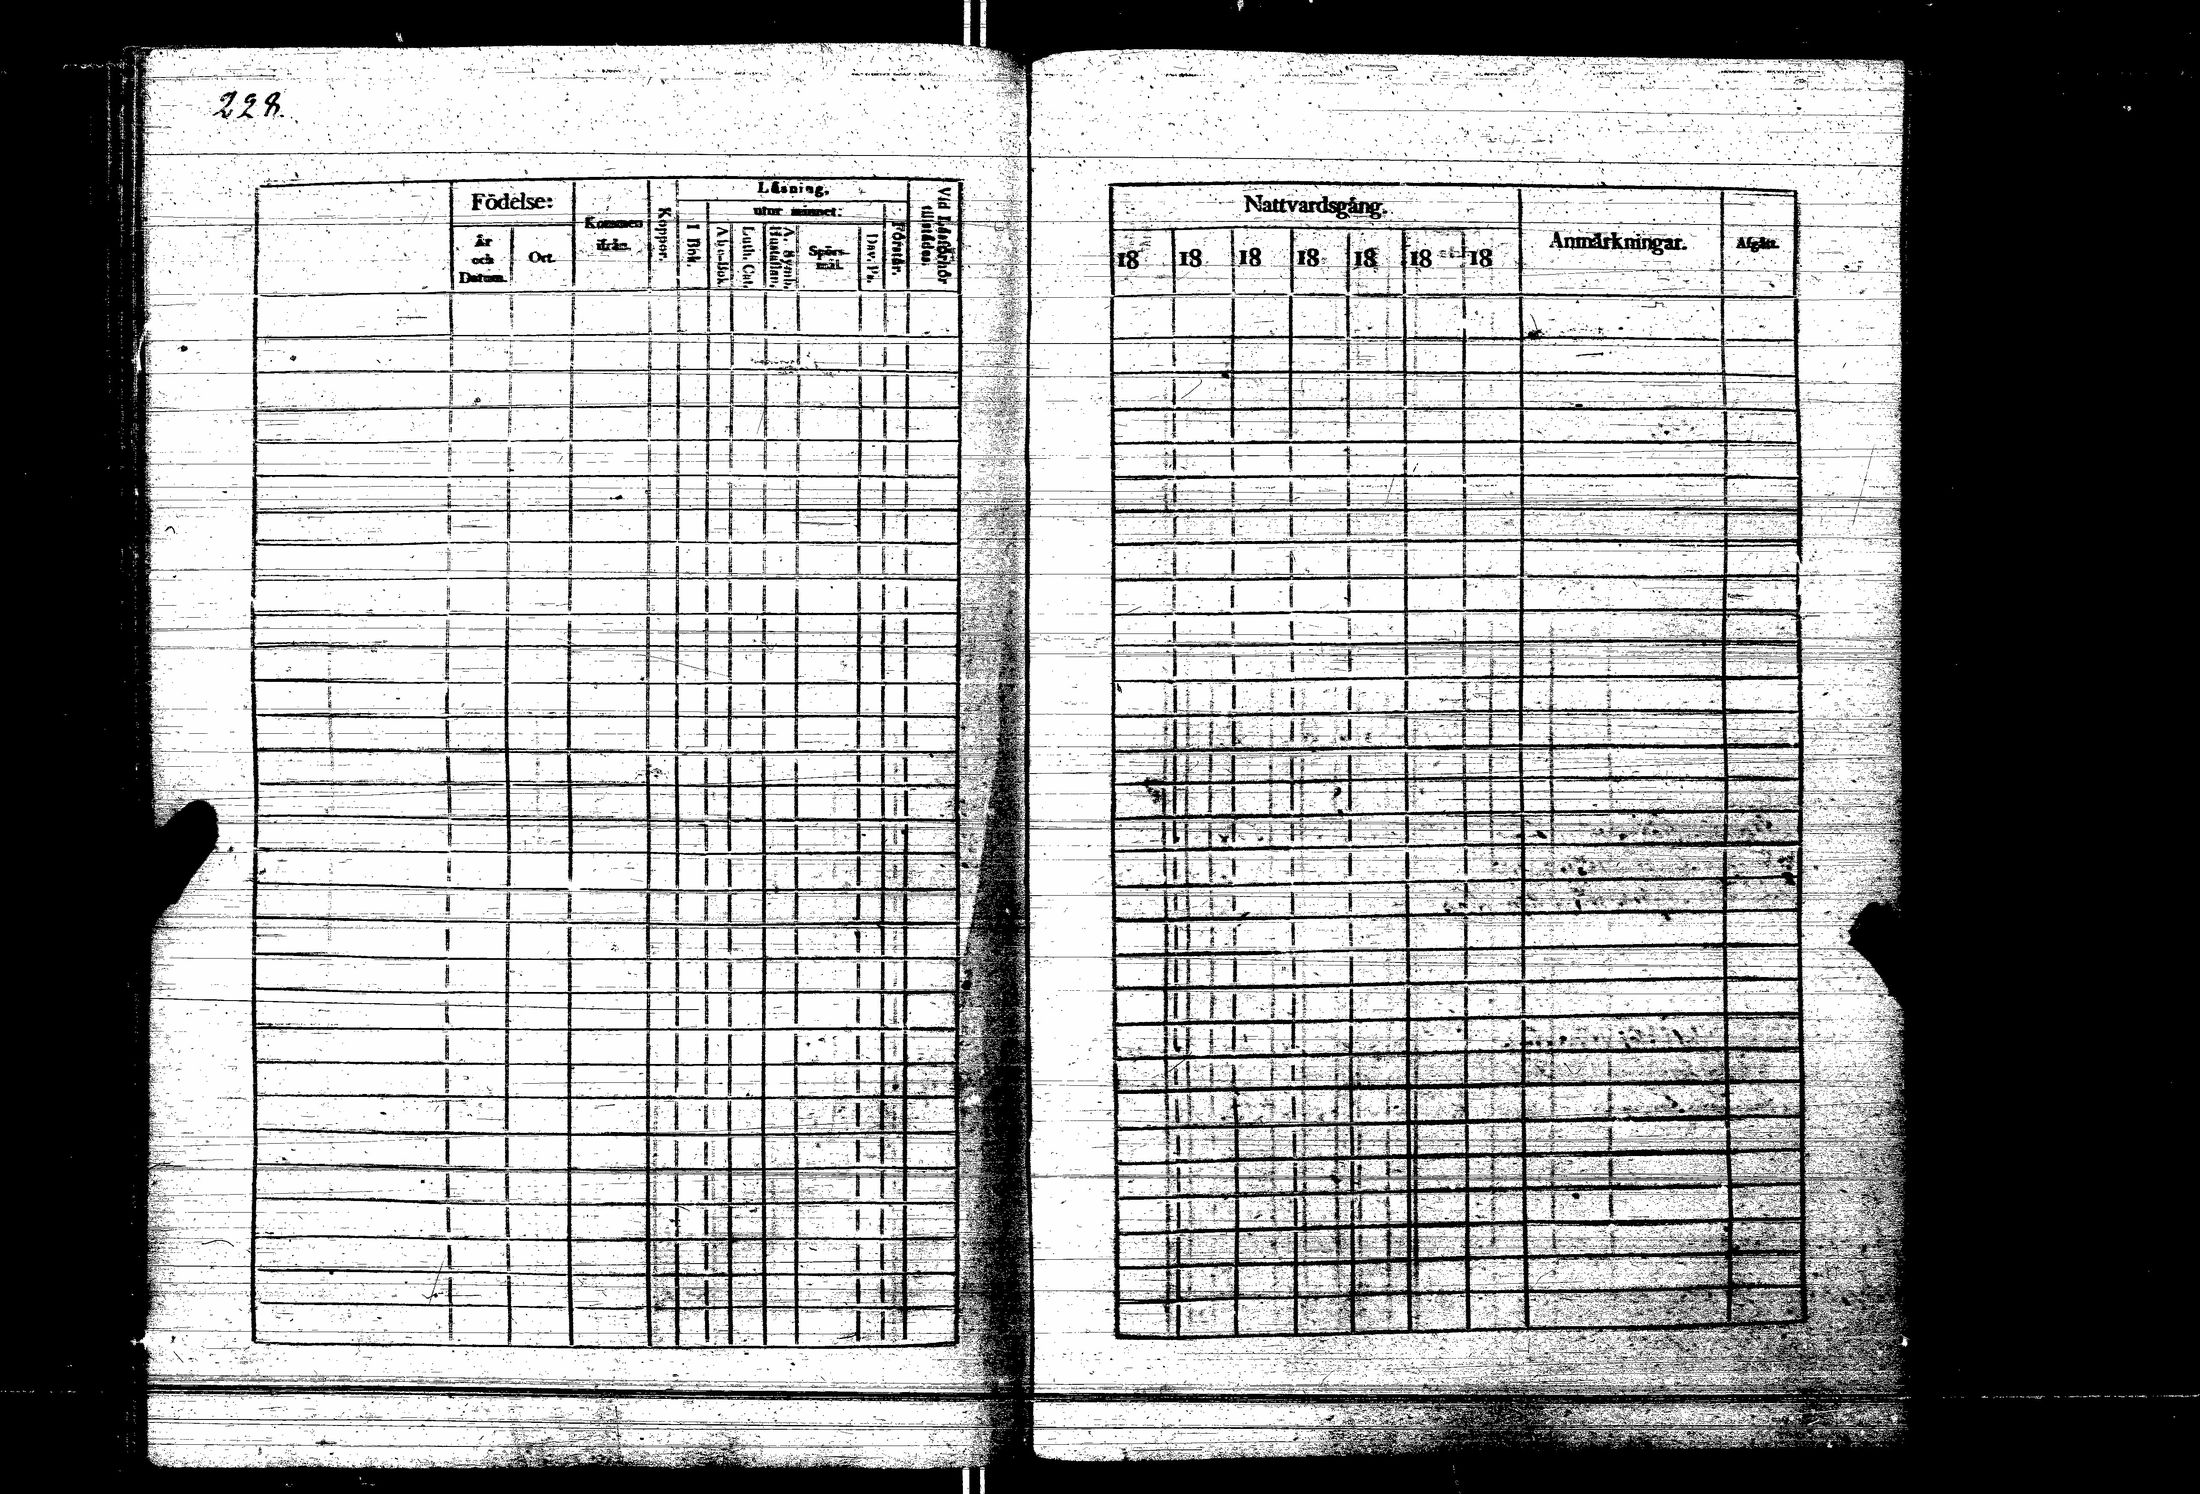 228.
Födelse:
År
och
Datum.
Ort.
Kommen
ifrån.
Koppor.
Läsning.
I Bok.
utur minnet:
Abc-Bok.
Luth. Cat.
A. Symb.
Hustaflan.
Spörs-
mål.
Dav. Ps.
Förstår.
Vid Läsförhör
tillstädes.
Nattvardsgång.
18 18 18 18 18 18 18
Anmärkningar.
Afgått.